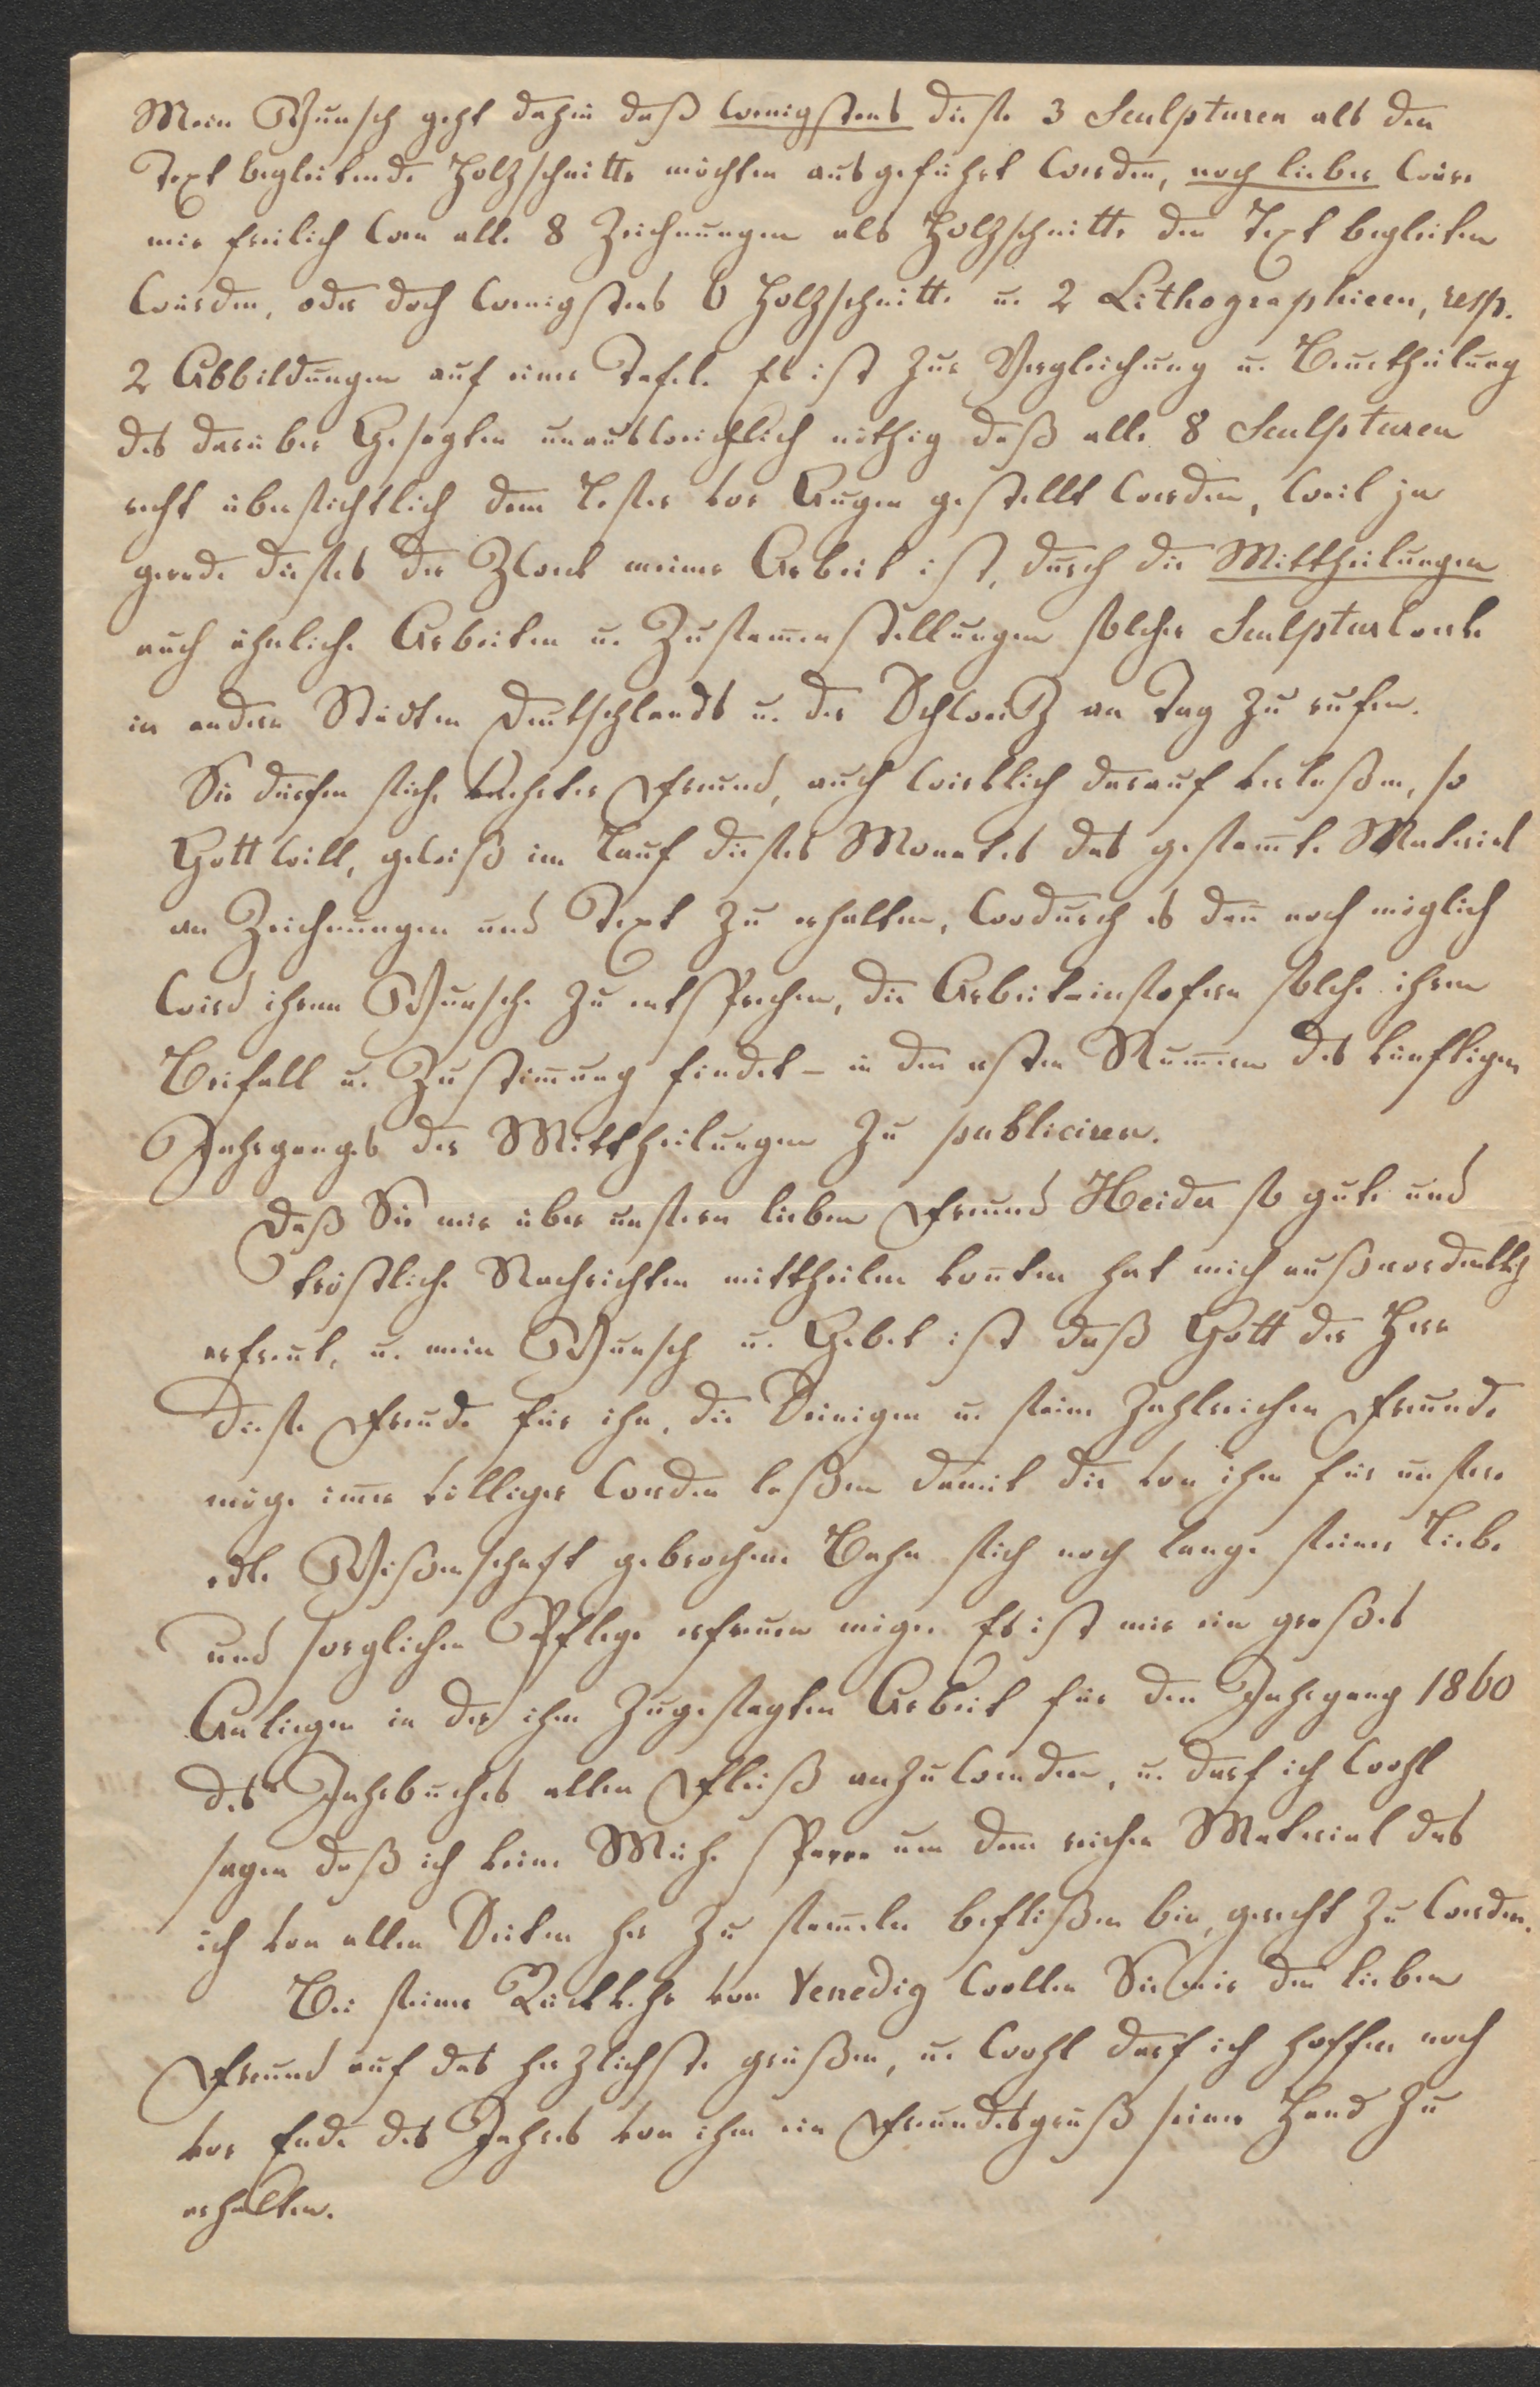 Mein Wunsch geht dahin daß wenigstens diese 3 Sculpturen als den
Text begleitende Holzschnitte möchten ausgeführt werden, noch lieber wäre
mir freilich wen alle 8 Zeichnungen als Holzschnitte den Text begleiten
würden, oder doch wenigstens 6 Holzschnitte u. 2 Lithographieen, resp.
2 Abbildungen auf einer Tafel. Es ist zur Vergleichung u. Beurtheilung
des darüber Gesagten unausweichlich nöthig daß alle 8 Sculpturen
recht übersichtlich dem Leser vor Augen gestellt werden, weil ja
gerade dieses der Zweck meiner Arbeit ist, durch die Mittheilungen
auch ähnliche Arbeiten u. Zusam̄enstellungen solcher Sculpturwerke
in andern Städten Deutschlands u. der Schweiz an Tag zu rufen.
Sie dürfen sich, verehrter Freund, auch wirklich darauf verlaßen, so
Gott will, gewiß im Lauf dieses Monates das gesam̄te Material
an Zeichnungen und Text zu erhalten, wodurch es den̄ noch möglich
wird ihrem Wunsche zu entsprechen, die Arbeit – insofern solche ihren
Beifall u. Zustim̄ung findet – in den ersten Num̄ern des künftigen
Jahrganges der Mittheilungen zu publiciren.
Daß Sie mir über unsern lieben Freund Heider so gute und
tröstliche Nachrichten mittheilen kon̄ten hat mich außerordentlich
erfreut, u. mein Wunsch u. Gebet ist daß Gott der Herr
diese Freude für ihn, die Seinigen u. seine zahlreichen Freunde
möge im̄er völliger werden laßen damit die von ihm für unsere
edle Wißenschaft gebrochene Bahn sich noch lange seiner Liebe
und sorglichen Pflege erfreuen möge. Es ist mir ein großes
Anliegen in der ihm zugesagten Arbeit für den Jahrgang 1860
des Jahrbuches allen Fleiß anzuwenden, u. darf ich wohl
sagen daß ich keine Mühe spare um dem reichen Material das
ich von allen Seiten her zu sam̄eln beflißen bin, gerecht zu werden.
Bei seiner Rückkehr von Venedig wollen Sie mir den lieben
Freund auf das herzlichste grüßen, u. wohl darf ich hoffen noch
vor Ende des Jahres von ihm ein Freundesgruß seiner Hand zu
erhalten.